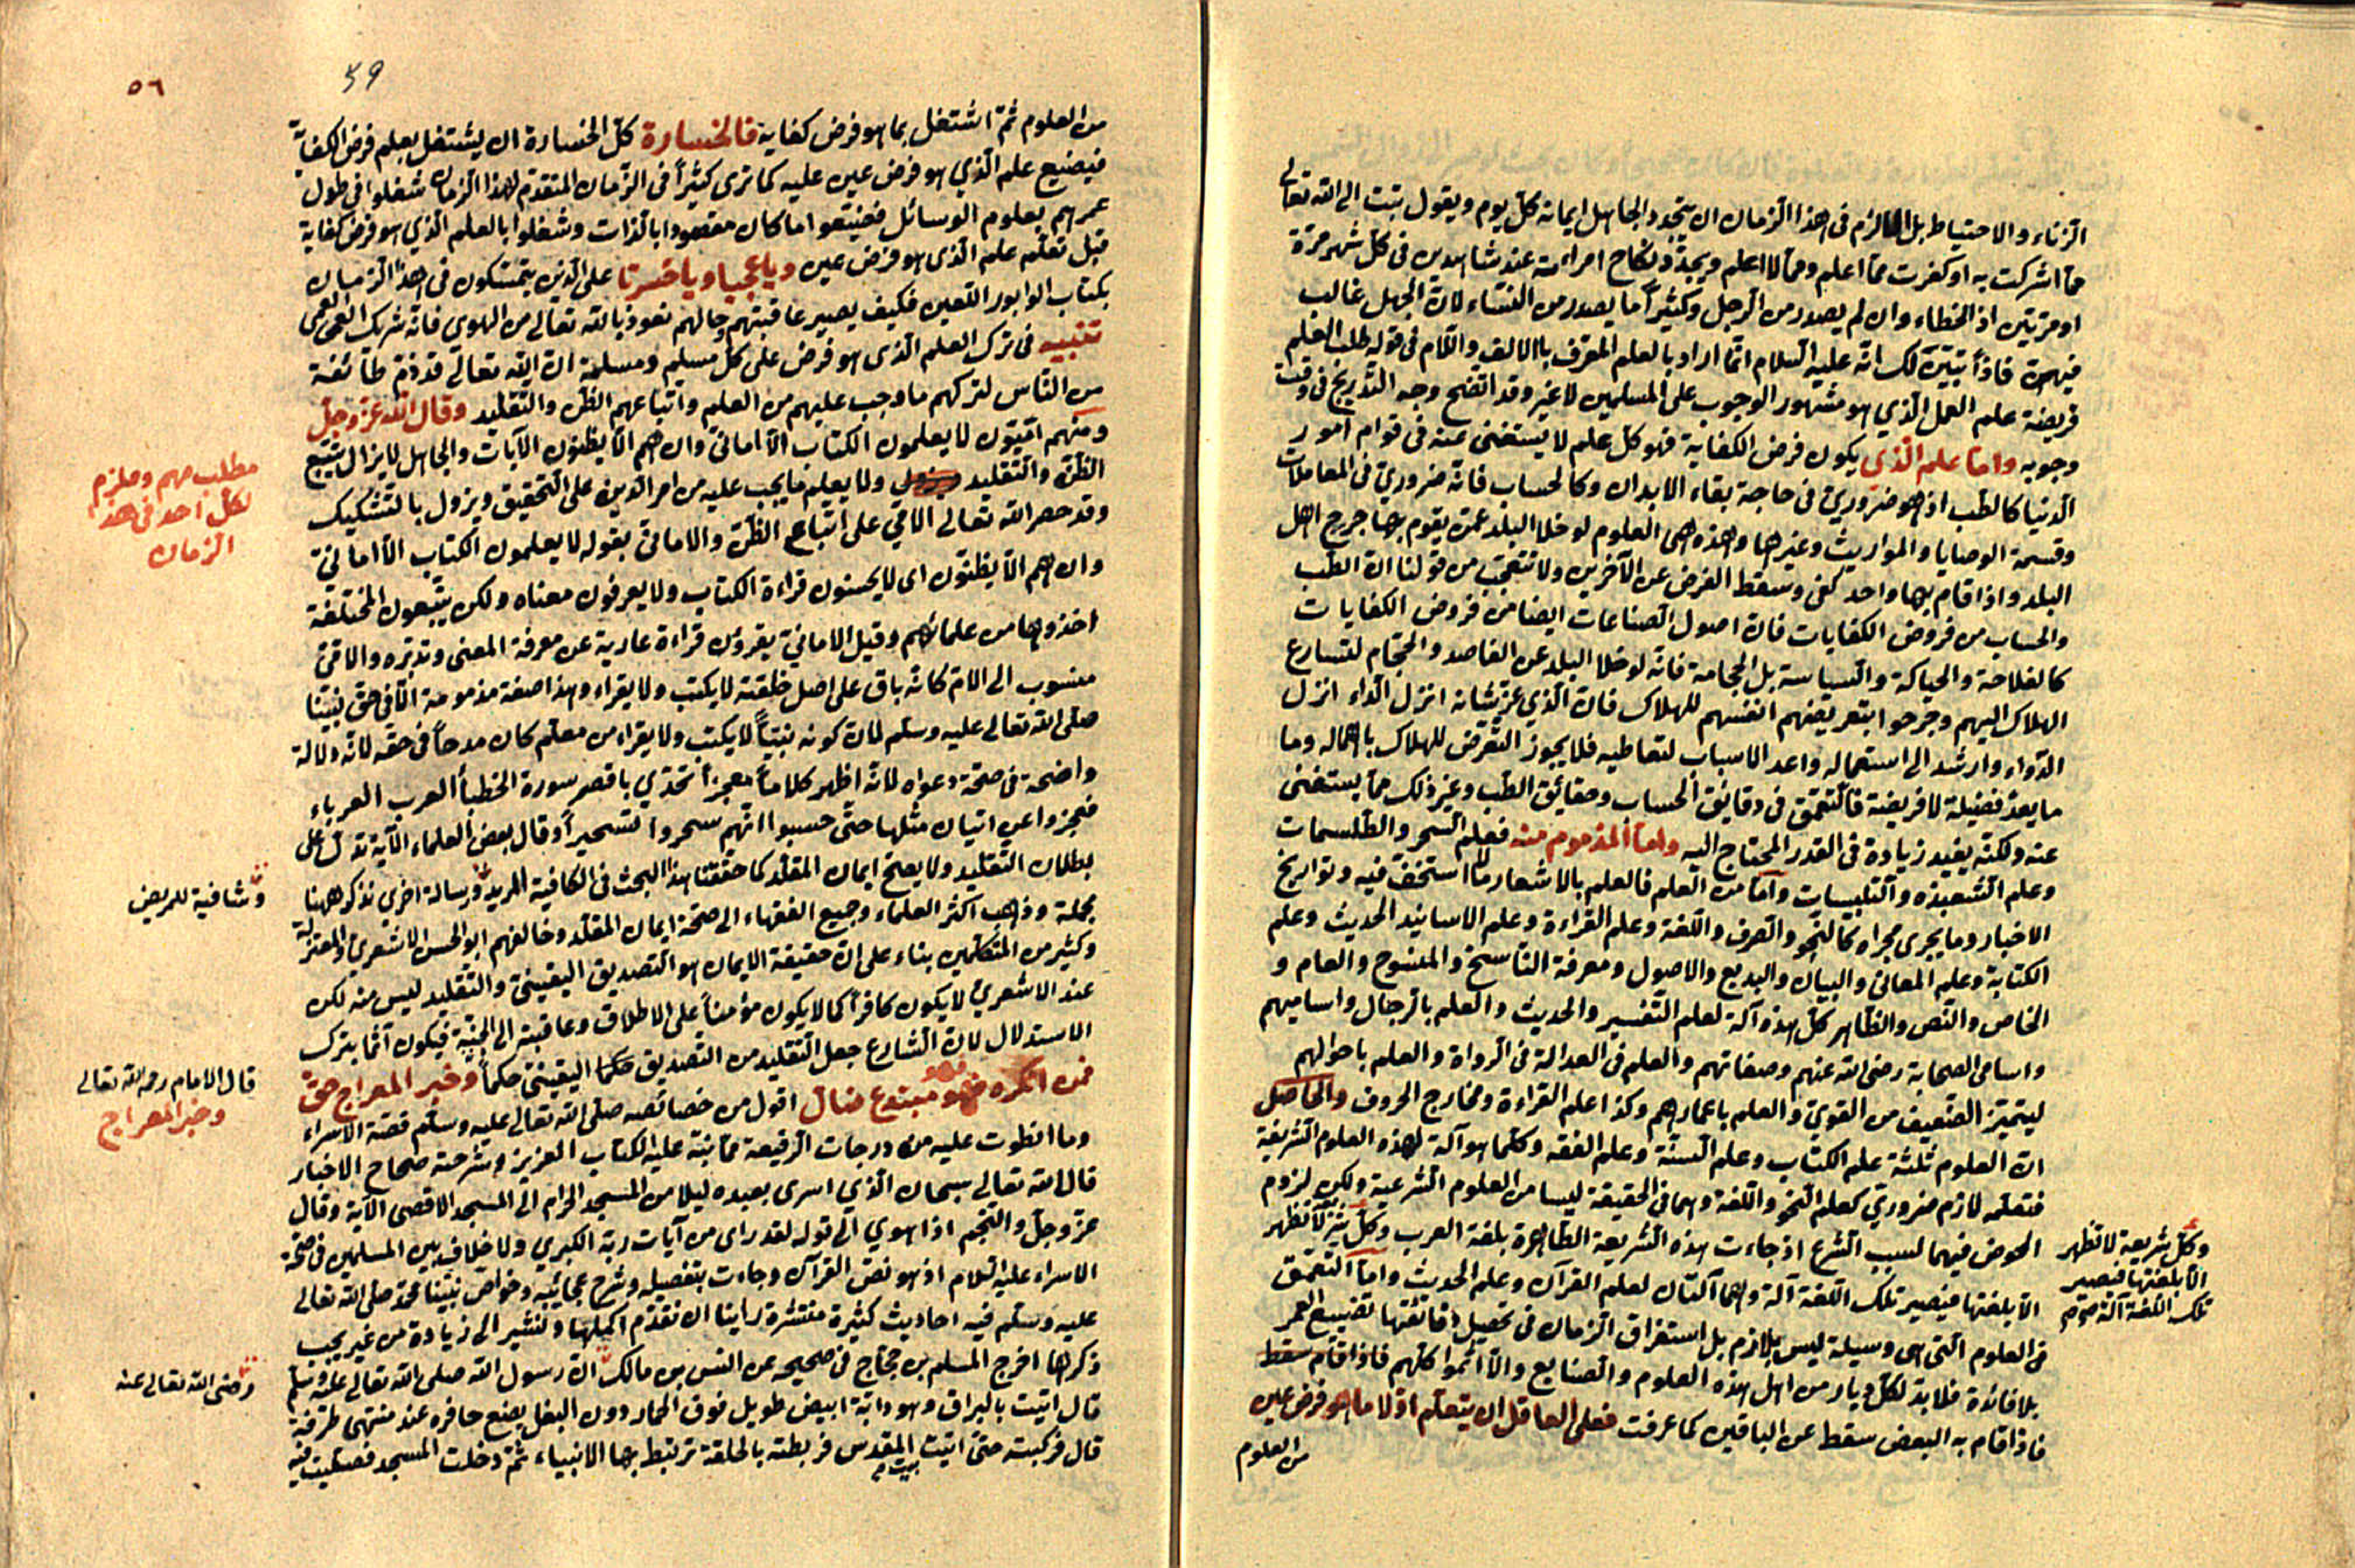 الزناء والاحتياط بل اللازم في هذا الزمان ان يتجدد الجاهل ايمانه كل يوم ويقول تبت الى الله تعالى
مما اشركت به او كفرت مما اعلم ومما لا اعلم ويجدد نكاح امراءته عند شاهدين في كل شهر مرة
او مرتين اذ الخطاء وان لم يصدر من الرجل وكثيراً ما يصدر من النساء لان الجهل غالب
فيهن فاذاً تبين لك انه عليه السلام انما اراد بالعلم المعرف بالالف واللام في قوله طلب العلم
فريضة علم العمل الذي هو مشهور الوجوب على المسلمين لا غير وقد اتضح وجه التدريج في وقت
وجوبه واما علم الذي يكون فرض الكفاية فهو كل علم لا يستغنى عنه في قوام امور
الدنيا كالطب اذ هو ضروري في حاجة بقاء الابدان وكالحساب فانه ضروري في المعاملات
وقسمة الوصايا والمواريث وغيرها وهذه هى العلوم لو خلا البلد عمن يقوم بها جرح اهل
البلد واذا قام بها واحد كفى وسقط الفرض عن الآخرين ولا تتعجب من قولنا ان الطب
والحساب من فروض الكفايات فان اصول الصناعات ايضا من فروض الكفايات
كالفلاحة والحياكة والسياسة بل الحجامة فانه لو خلا البلد عن الفاصد والحجام لتسارع
الهلاك اليهم وجرحوا بتعريضهم انفسهم للهلاك فان الذي عز شانه انزل الداء انزل
الدواء وارشد الى استعماله واعد الاسباب لتعاطيه فلا يجوز التعرض للهلاك باهماله وما
ما يعد فضيلة لا فريضة فالتعمق في دقايق الحساب وحقائق الطب وغير ذلك مما يستغنى
عنه ولكنه يفيد زيادة في القدر المحتاج اليه واما المذموم منه فعلم السحر والطلسمات
وعلم الشعبذه والتلبيسات واما من العلم فالعلم بالاشعار لا استخف فيه وتواريخ
الاخبار وما يجرى مجراه كالنحو والصرف واللغة وعلم القراءة وعلم الاسانيد الحديث وعلم
الكتابة وعلم المعاني والبيان والبديع والاصول ومعرفة الناسخ والمنسوخ والعام و
الخاص والنص والظاهر كل هذه آلة لعلم التفسير والحديث والعلم بالرجال واساميهم
واسامى الصحابة رضى الله عنهم وصفاتهم والعلم في العدالة في الرواة والعلم باحوالهم
ليتميز الضعيف من القوي والعلم باعمارهم وكذا علم القراءة ومخارج الحروف والحاصل
ان العلوم ثلثة علم الكتاب وعلم السنة وعلم الفقه وكلما هو آلة لهذه العلوم الشريفة
فتعلمه لازم ضروري كعلم النحو واللغة وهما في الحقيقة ليسا من العلوم الشرعية ولكن لزوم
الخوض فيهما لسبب الشرع اذ جاءت هذه الشريعة الطاهرة بلغة العرب وكل شريعة لا تظهر
الا بلغتها فيصير تلك اللغة آلة وهما آلتان لعلم القرآن وعلم الحديث واما التعمق
في العلوم التى هى وسيلة ليس بلازم بل استغراق الزمان في تحصيل دقائقها تضييع العمر
بلا فائدة فلا بد لكل ديار من اهل هذه العلوم والصنايع والا اثموا كلهم فاذا قام سقط
فاذا قام به البعض سقط عن الباقين كما عرفت فعلى العاقل ان يتعلم اولا ما هو فرض عين
من العلوم
وكل شريعة لا تظهر
الا بلغتها فيصير
تلك اللغة آلة صح
٥٦
59
من العلوم ثم اشتغل بما هو فرض كفاية فالخسارة كل الخسارة ان يشتغل بعلم فرض الكفاية
فيضيع علم الذي هو فرض عين عليه كما ترى كثيراً في الزمان المتقدم لهذا الزمان شغلوا في طول
عمرهم بعلوم الوسائل فضيعوا ما كان مقصودا بالذات وشغلوا بالعلم الذي هو فرض كفاية
قبل تعلم علم الذى هو فرض عين ويا عجبا ويا خسرتا على الذين يتمسكون في هذا الزمان
بكتاب الوابور اللعين فكيف يصير عاقبتهم وحالهم نعوذ بالله تعالى من الهوى فانه شريك العمى
تنبيه في ترك العلم الذى هو فرض على كل مسلم ومسلمة ان الله تعالى قد ذم طائفة
من الناس لتركهم ما وجب عليهم من العلم واتباعهم الظن والتقليد وقال الله عز وجل
ومنهم اميون لا يعلمون الكتاب الا اماني وان هم الا يظنون الآيات والجاهل لا يزال يتبع
الظن والتقليد ولا يعلم ما يجب عليه من امر الدين على التحقيق ويزول بالتشكيك
وقد حصر الله تعالى الامي على اتباع الظن والاماني بقوله لا يعلمون الكتاب الا اماني
وان هم الا يظنون اى لا يحسنون قراءة الكتاب ولا يعرفون معناه ولكن يتبعون المختلفة
اخذوها من علمائهم وقيل الاماني يقرؤن قراءة عارية عن معرفة المعنى وتدبره والامي
منسوب الى الام كانه باق على اصل خلقته لا يكتب ولا يقراء وهذا صفة مذمومة الا في حق نبينا
صلى الله تعالى عليه وسلم لان كونه نبياً لا يكتب ولا يقراء من معلم كان مدحاً في حقه لانه دلالة
واضحة في صحة دعواه لانه اظهر كلاماً معجزاً تحدي باقصر سورة الخطباء العرب العرباء
فعجزوا عن اتيان مثلها حتى حسبوا انهم سحروا تسحيراً وقال بعض العلماء الآية تدل على
بطلان التقليد ولا يصح ايمان المقلد كما حققنا هذا البحث في الكافية المريد ورسالة اخرى نذكر ههنا
مجملة وذاهب اكثر العلماء وجميع الفقهاء الى صحة ايمان المقلد وخالفهم ابو الحسن الاشعري والمعتزلة
وكثير من المتكلمين بناء على ان حقيقة الايمان هو التصديق اليقيني والتقليد ليس منه لكن
عند الاشعري لا يكون كافراً كما لا يكون مؤمناً على الاطلاق وعاقبته الى الجنة فيكون آثما بترك
الاستدلال لان الشارع جعل التقليد من التصديق حكما اليقيني حكماً وخبر المعراج حق
فمن انكره فهو مبتدع ضال اقول من خصائصه صلى الله تعالى عليه وسلم قصة الاسراء
وما انطوت عليه من درجات الرفيعة مما نبه عليه الكتاب العزيز وشرحته صحاح الاخبار
قال الله تعالى سبحان الذي اسرى بعبده ليلا من المسجد الحرام الى المسجد الاقصى الآية وقال
عز وجل والنجم اذا هوي الى قوله لقد راى من آيات ربه الكبري ولا خلاف بين المسلمين في صحة
الاسراء عليه السلام اذ هو نص القرآن وجاءت بتفصيله وشرح عجائبه وخواص نبينا محمد صلى الله تعالى
عليه وسلم فيه احاديث كثيرة منتشرة راينا ان نقدم اكملها ونشير الى زيادة من غيره يجب
ذكرها اخرج المسلم بن حجاج في صحيحه عن انس بن مالك ان رسول الله صلى الله تعالى عليه وسلم
قال اتيت بالبراق وهو دابة ابيض طويل فوق الحمار ودون البغل يضع حافره عند منتهى طرفه
قال فركبته حتى اتيت بيت المقدس فربطته بالحلقة تربط بها الانبياء ثم دخلت المسجد فصليت فيه
مطلب مهم وملزم
لكل احد في هذا
الزمان
وشافية للمريض
قال الامام رحمه الله تعالى
وخبر المعراج
رضى الله تعالى عنه